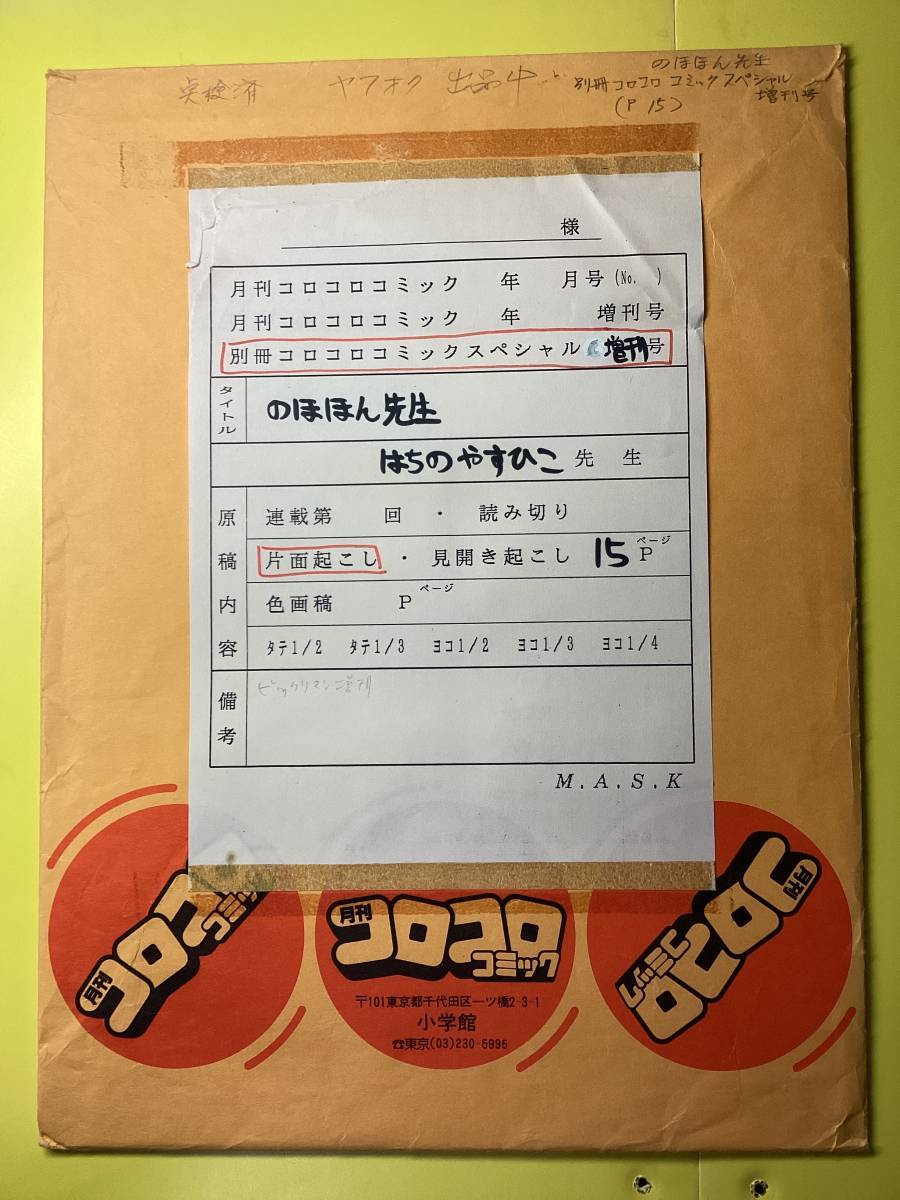 点検済 ヤフオク 出品中
のほほん先生
別冊コロコロ コミックスペシャル
増刊号
(P 15)
様
月刊コロコロコミック 年 月号(No. )
月刊コロコロコミック 年 増刊号
別冊コロコロコミックスペシャル 増刊号
タイトル
のほほん先生
はちのやすひこ 先 生
原稿内容
連載第 回 ・ 読み切り
片面起こし ・ 見開き起こし 15 P ページ
色画稿 P ページ
タテ1/2 タテ1/3 ヨコ1/2 ヨコ1/3 ヨコ1/4
備考
ビックリマン増刊
M.A.S.K
月刊 コロコ コミッ
月刊 コロコロ コミック
〒101東京都千代田区一ツ橋2-3-1
小学館
☎東京(03)230-5995
月刊 コロコロ コミック